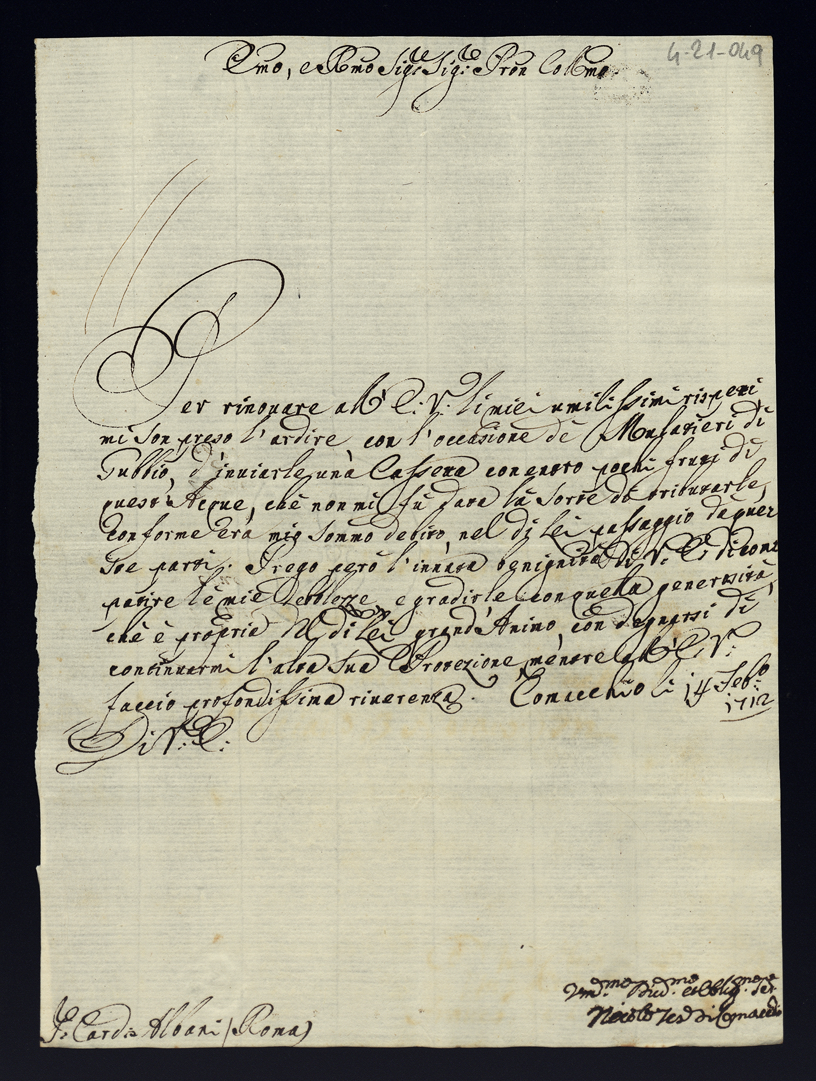 4-21-049
Emo, e Rmo Sigre Sigre Pron Colmo
Per rinovare all' E: V: li miei umilissimi rispetti
mi son preso l'ardire con l'occasione de Mulattieri di
Gubbio, d'inviarle una Cassetta con entro pochi frutti di
queste Acque, che non mi fù data la sorte di tributarle,
conforme era mio sommo debito, nel di lei passaggio da ques
te parti. Prego però l'innata benignità di V. E. di com
patire le mie debolezze, e gradirle con quella generosità
che è propria del di lei grand'Animo, con degnarsi di
continuarmi l'alta sua Protezione, mentre all' E. V.
faccio profondissima riverenza. Comacchio li 14 Febo:
1712
Di V: E:
Sr: Card: Albani (Roma)
Vmo Divmo et Obligmo Ser
Nicolò Ves di Comacchio